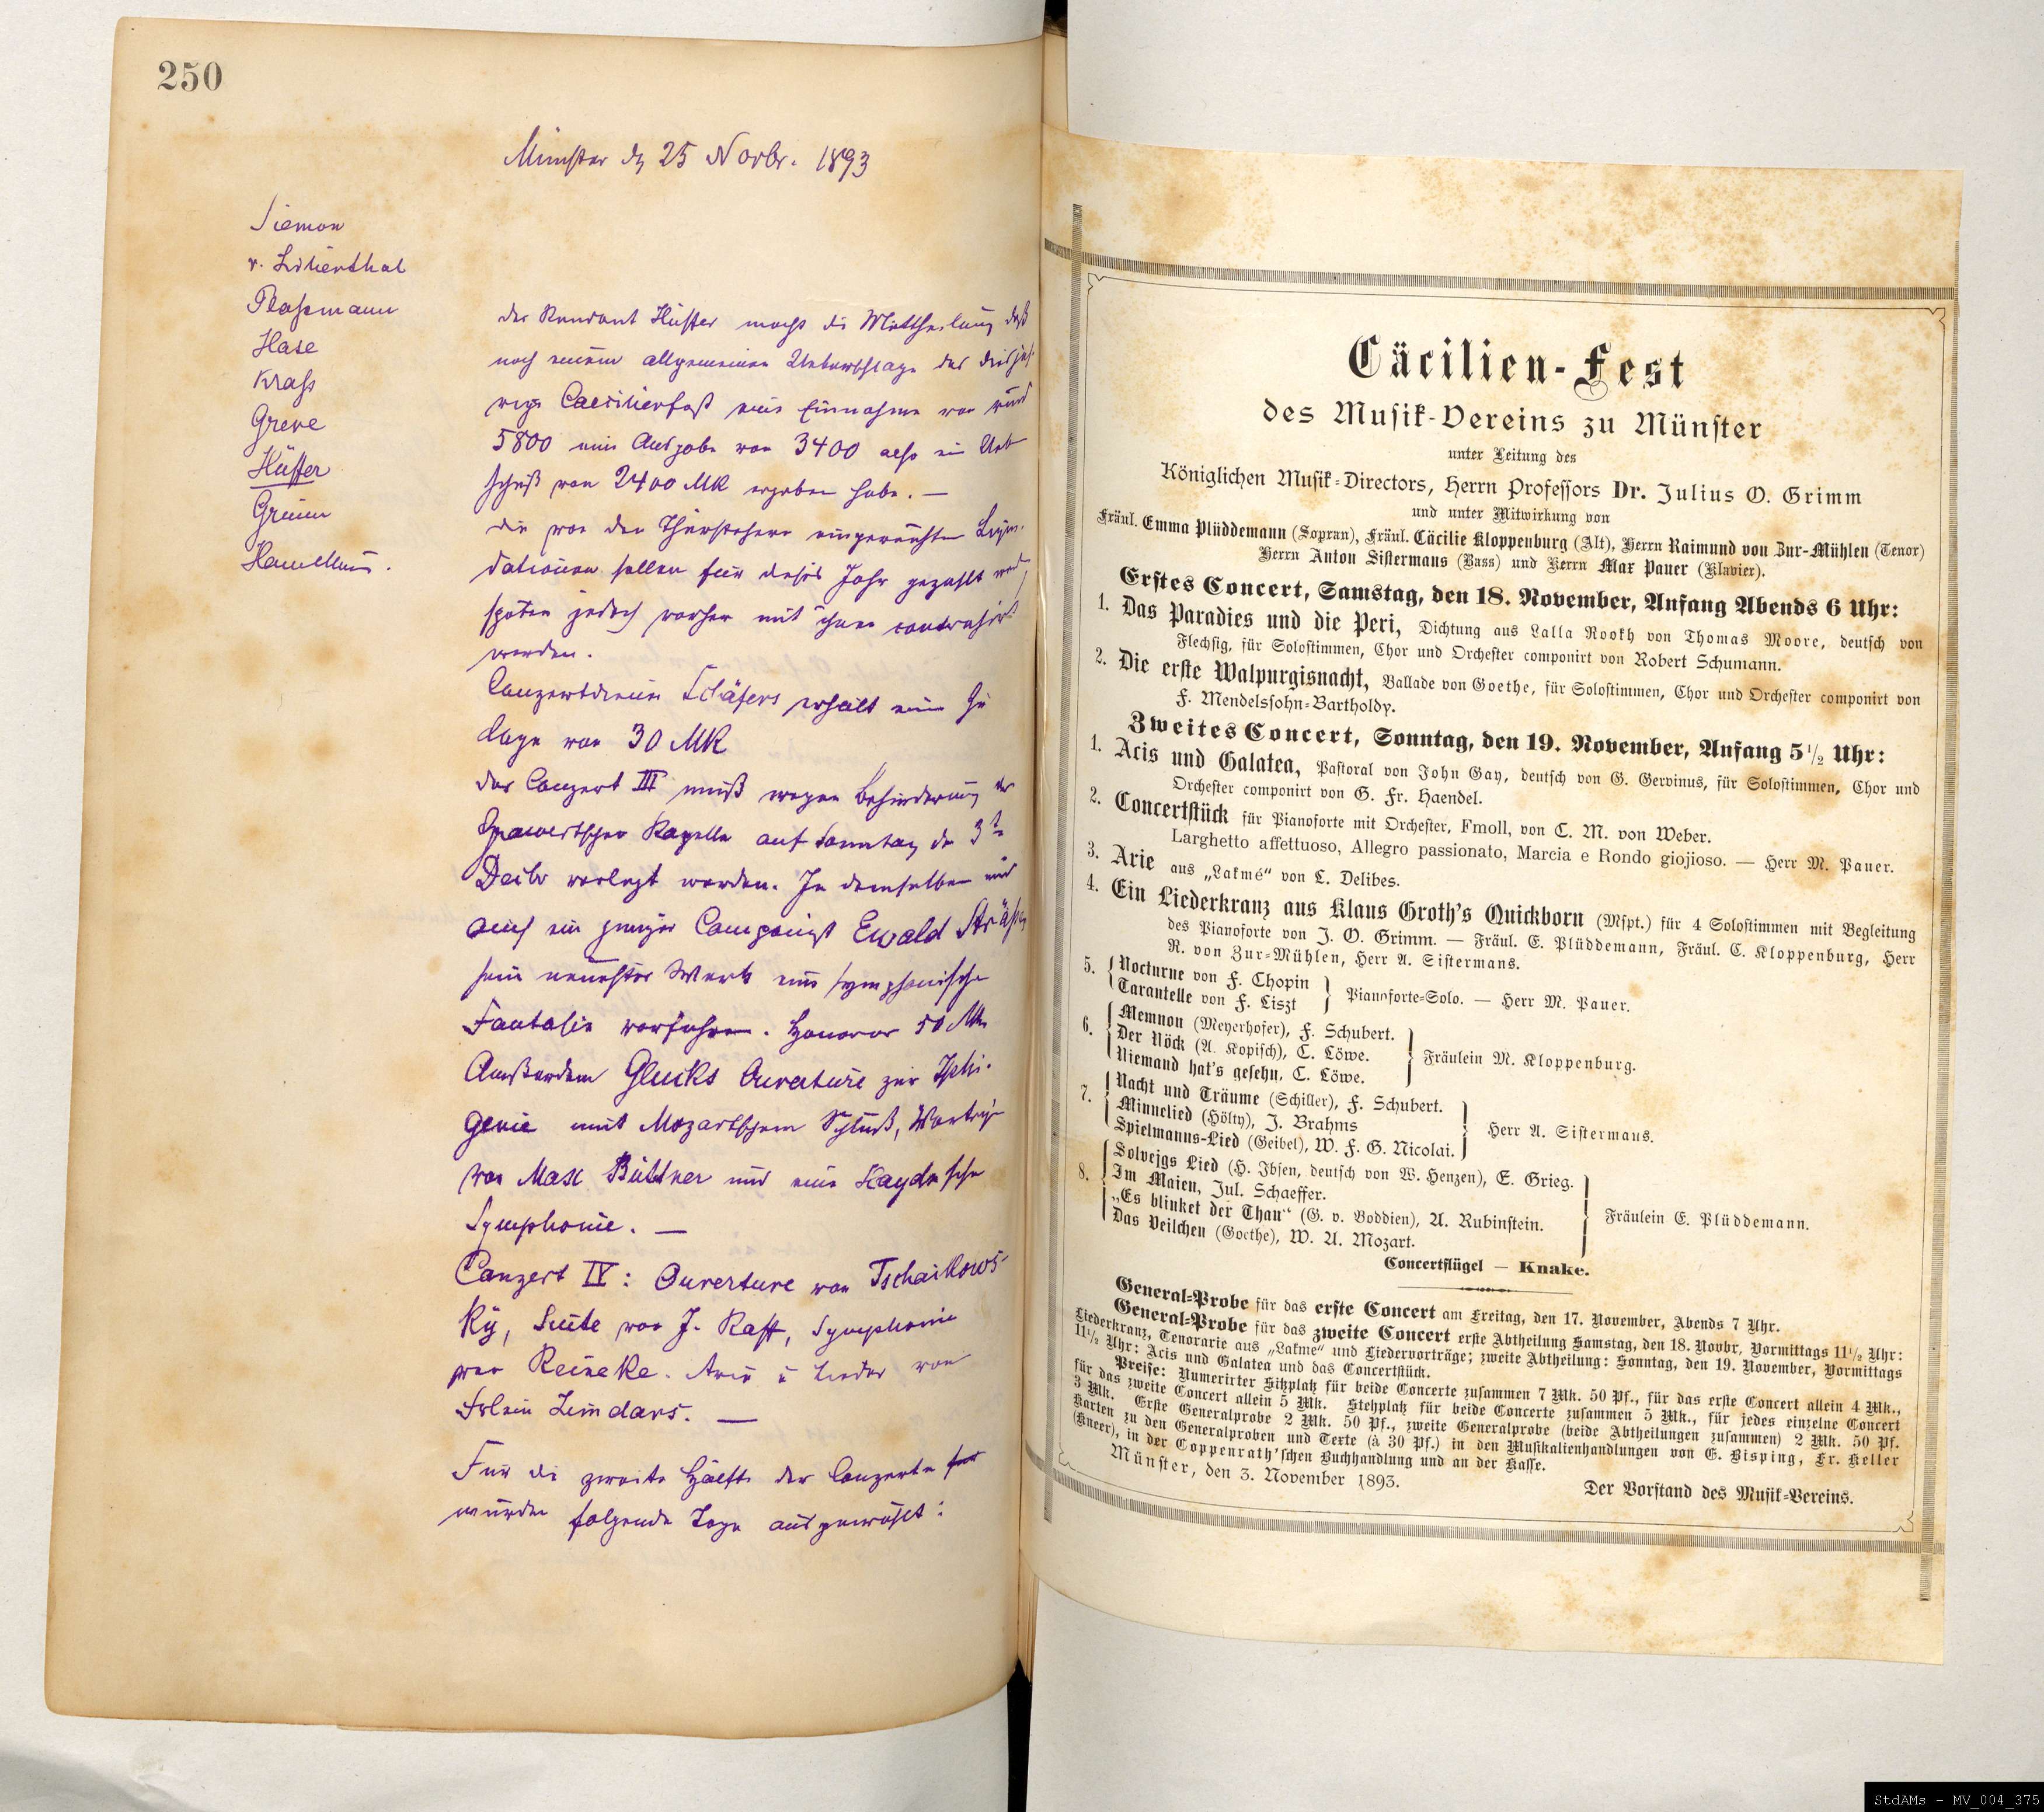 250
Münster dz 25 Novbr. 1893
Siemon
v. Lilienthal
Plaßmann
Hase
Kraß
Greve
Hüffer
Grimm
der Rendant Hüffer macht die Mittheilung daß
nach einem allgemeinen Ueberschlage das diesjäh-
rige Caecilienfest eine Einnahme von rund
5800 eine Ausgabe von 3400 also ein Ueb
schuß von 2400 MK ergeben habe. —
die von den Thürstehern eingereichten Liqui-
dationen sollen für dieses Jahr gezahlt werd,
später jedoch vorher mit ihnen contrahirt
werden.
Conzertdiener Schäfers erhält eine Zu
lage von 30 MK
das Conzert III muß wegen Behinderung der
Grawertschen Kapelle auf Sonntag de 3t
Decbr verlegt werden. In demselben wird
auch ein junger Componist Ewald
sein neuestes Werk eine symphonische
Fantasie vorführen. Honorar 50 Mk
Außerdem Glucks Ouverture zur Iphi-
genie mit Mozartschem Schluß, Vorträge
von Max Büttner und eine Haydnsche
Symphonie. —
Conzert IV: Ouverture von Tschaikows-
ky, Suite von J. Raff, Symphonie
von Reineke. Arie u Lieder von
Frlein Lündars. —
Für die zweite Hälfte der Conzerte
wurden folgende Tage ausgewählt:
Cäcilien-Fest
des Musik-Vereins zu Münster
unter Leitung des
Königlichen Musik-Directors, Herrn Professors Dr. Julius O. Grimm
und unter Mitwirkung von
Fräul. Emma Plüddemann (Sopran), Fräul. Cäcilie Kloppenburg (Alt), Herrn Raimund von Zur-Mühlen (Tenor)
Herrn Anton Sistermans (Bass) und Herrn Max Pauer (Klavier).
Erstes Concert, Samstag, den 18. November, Anfang Abends 6 Uhr:
1. Das Paradies und die Peri, Dichtung aus Lalla Rookh von Thomas Moore, deutsch von
Flechsig, für Solostimmen, Chor und Orchester componirt von Robert Schumann.
2. Die erste Walpurgisnacht, Ballade von Goethe, für Solostimmen, Chor und Orchester componirt von
F. Mendelssohn-Bartholdy.
Zweites Concert, Sonntag, den 19. November, Anfang 5 1/2 Uhr:
1. Acis und Galatea, Pastoral von John Gay, deutsch von G. Gervinus, für Solostimmen, Chor und
Orchester componirt von G. Fr. Haendel.
2. Concertstück für Pianoforte mit Orchester, Fmoll, von C. M. von Weber.
Larghetto affettuoso, Allegro passionato, Marcia e Rondo giojioso. — Herr M. Pauer.
3. Arie aus „Lakmé“ von L. Delibes.
4. Ein Liederkranz aus Klaus Groth's Quickborn (Mspt.) für 4 Solostimmen mit Begleitung
des Pianoforte von J. O. Grimm. — Fräul. E. Plüddemann, Fräul. C. Kloppenburg, Herr
R. von Zur-Mühlen, Herr A. Sistermans.
5. Nocturne von F. Chopin
Tarantelle von F. Liszt
Pianoforte-Solo. — Herr M. Pauer.
6. Memnon (Meyerhofer), F. Schubert.
Der Nöck (A. Kopisch), C. Löwe.
Niemand hat's gesehn, C. Löwe.
Fräulein M. Kloppenburg.
7. Nacht und Träume (Schiller), F. Schubert.
Minnelied (Hölty), J. Brahms
Spielmanns-Lied (Geibel), W. F. G. Nicolai.
Herr A. Sistermans.
8. Solvejgs Lied (H. Ibsen, deutsch von W. Henzen), E. Grieg.
Im Maien, Jul. Schaeffer.
„Es blinket der Thau“ (G. v. Boddien), A. Rubinstein.
Das Veilchen (Goethe), W. A. Mozart.
Fräulein E. Plüddemann.
Concertflügel — Knake.
General-Probe für das erste Concert am Freitag, den 17. November, Abends 7 Uhr.
General-Probe für das zweite Concert erste Abtheilung Samstag, den 18. Novbr, Vormittags 11 1/2 Uhr:
Liederkranz, Tenorarie aus „Lakmé“ und Liedervorträge; zweite Abtheilung: Sonntag, den 19. November, Vormittags
11 1/2 Uhr: Acis und Galatea und das Concertstück.
Preise: Numerirter Sitzplatz für beide Concerte zusammen 7 Mk. 50 Pf., für das erste Concert allein 4 Mk.,
für das zweite Concert allein 5 Mk. Stehplatz für beide Concerte zusammen 5 Mk., für jedes einzelne Concert
3 Mk. Erste Generalprobe 2 Mk. 50 Pf., zweite Generalprobe (beide Abtheilungen zusammen) 2 Mk. 50 Pf.
Karten zu den Generalproben und Texte (à 30 Pf.) in den Musikalienhandlungen von E. Bisping, Fr. Keller
(Kneer), in der Coppenrath'schen Buchhandlung und an der Kasse.
Münster, den 3. November 1893.
Der Vorstand des Musik-Vereins.
StdAMs - MV_004_375